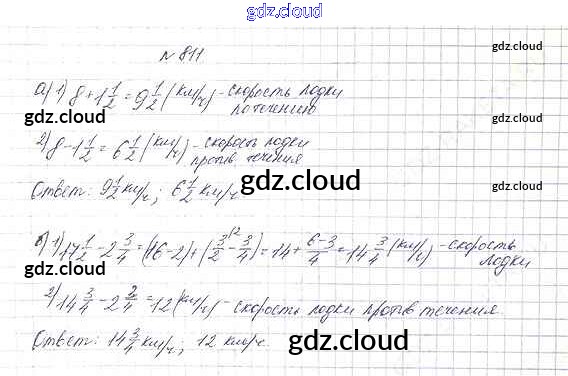 gdz.cloud
№ 811
а) 1) 8 + 1 1/2 = 9 1/2 (км/ч) - скорость лодки
по течению
2) 8 - 1 1/2 = 6 1/2 (км/ч) - скорость лодки
против течения
Ответ: 9 1/2 км/ч; 6 1/2 км/ч.
gdz.cloud
б) 1) 17 1/2 - 2 3/4 = (16-2) + (3/2 - 3/4) = 14 + (6-3)/4 = 14 3/4 (км/ч) - скорость
лодки
2) 14 3/4 - 2 3/4 = 12 (км/ч) - скорость лодки против течения
Ответ: 14 3/4 км/ч; 12 км/ч.
gdz.cloud